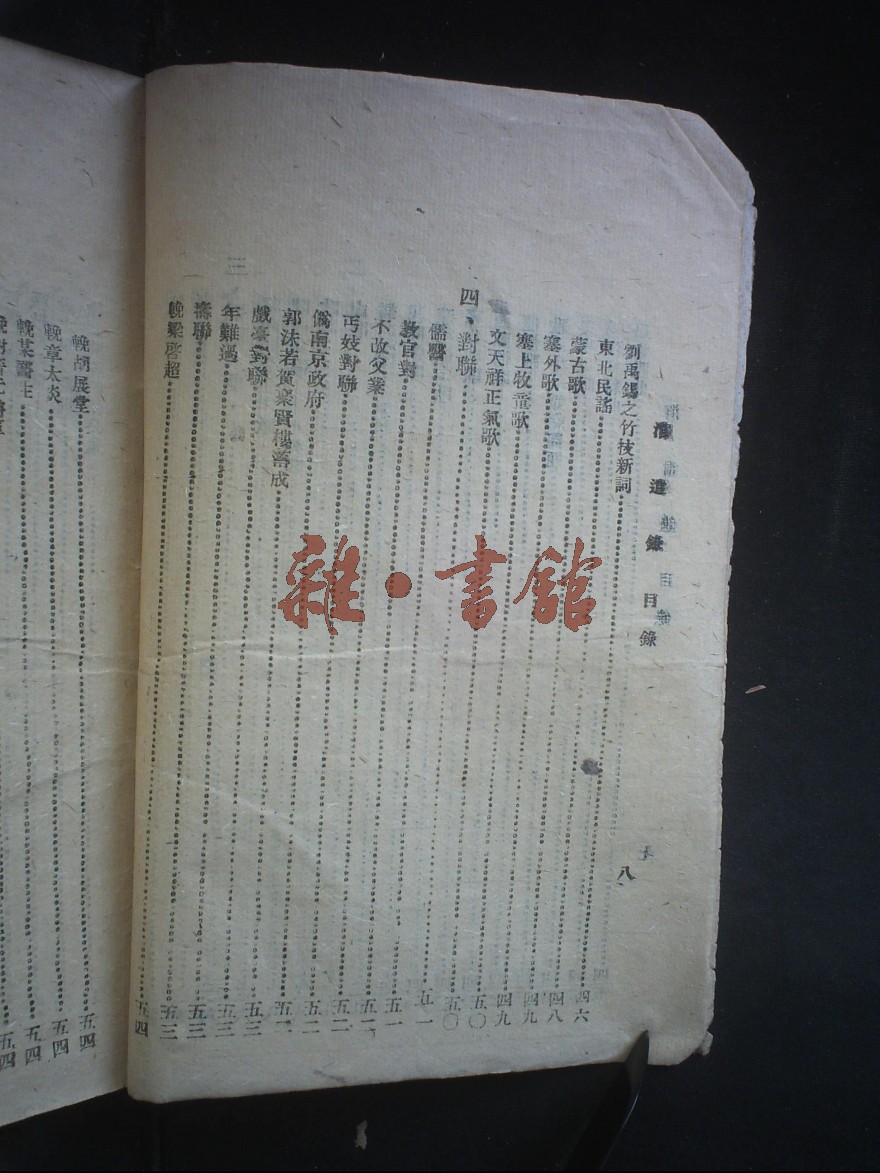 遺錄目錄
八
劉禹錫之竹枝新詞 四六
東北民謠 四八
蒙古歌 四九
塞外歌 四九
塞上牧童歌 五〇
文天祥正氣歌 五〇
四、對聯 五一
儒醫 五一
教官對 五二
不故父業 五二
丐妓對聯 五二
僞南京政府 五二
郭沫若賀樂賢樓落成 五三
戲臺對聯 五三
年難過 五三
壽聯 五三
輓梁啓超 五四
輓胡展堂 五四
輓章太炎 五四
輓某醫生 五四
五四
雜·書館